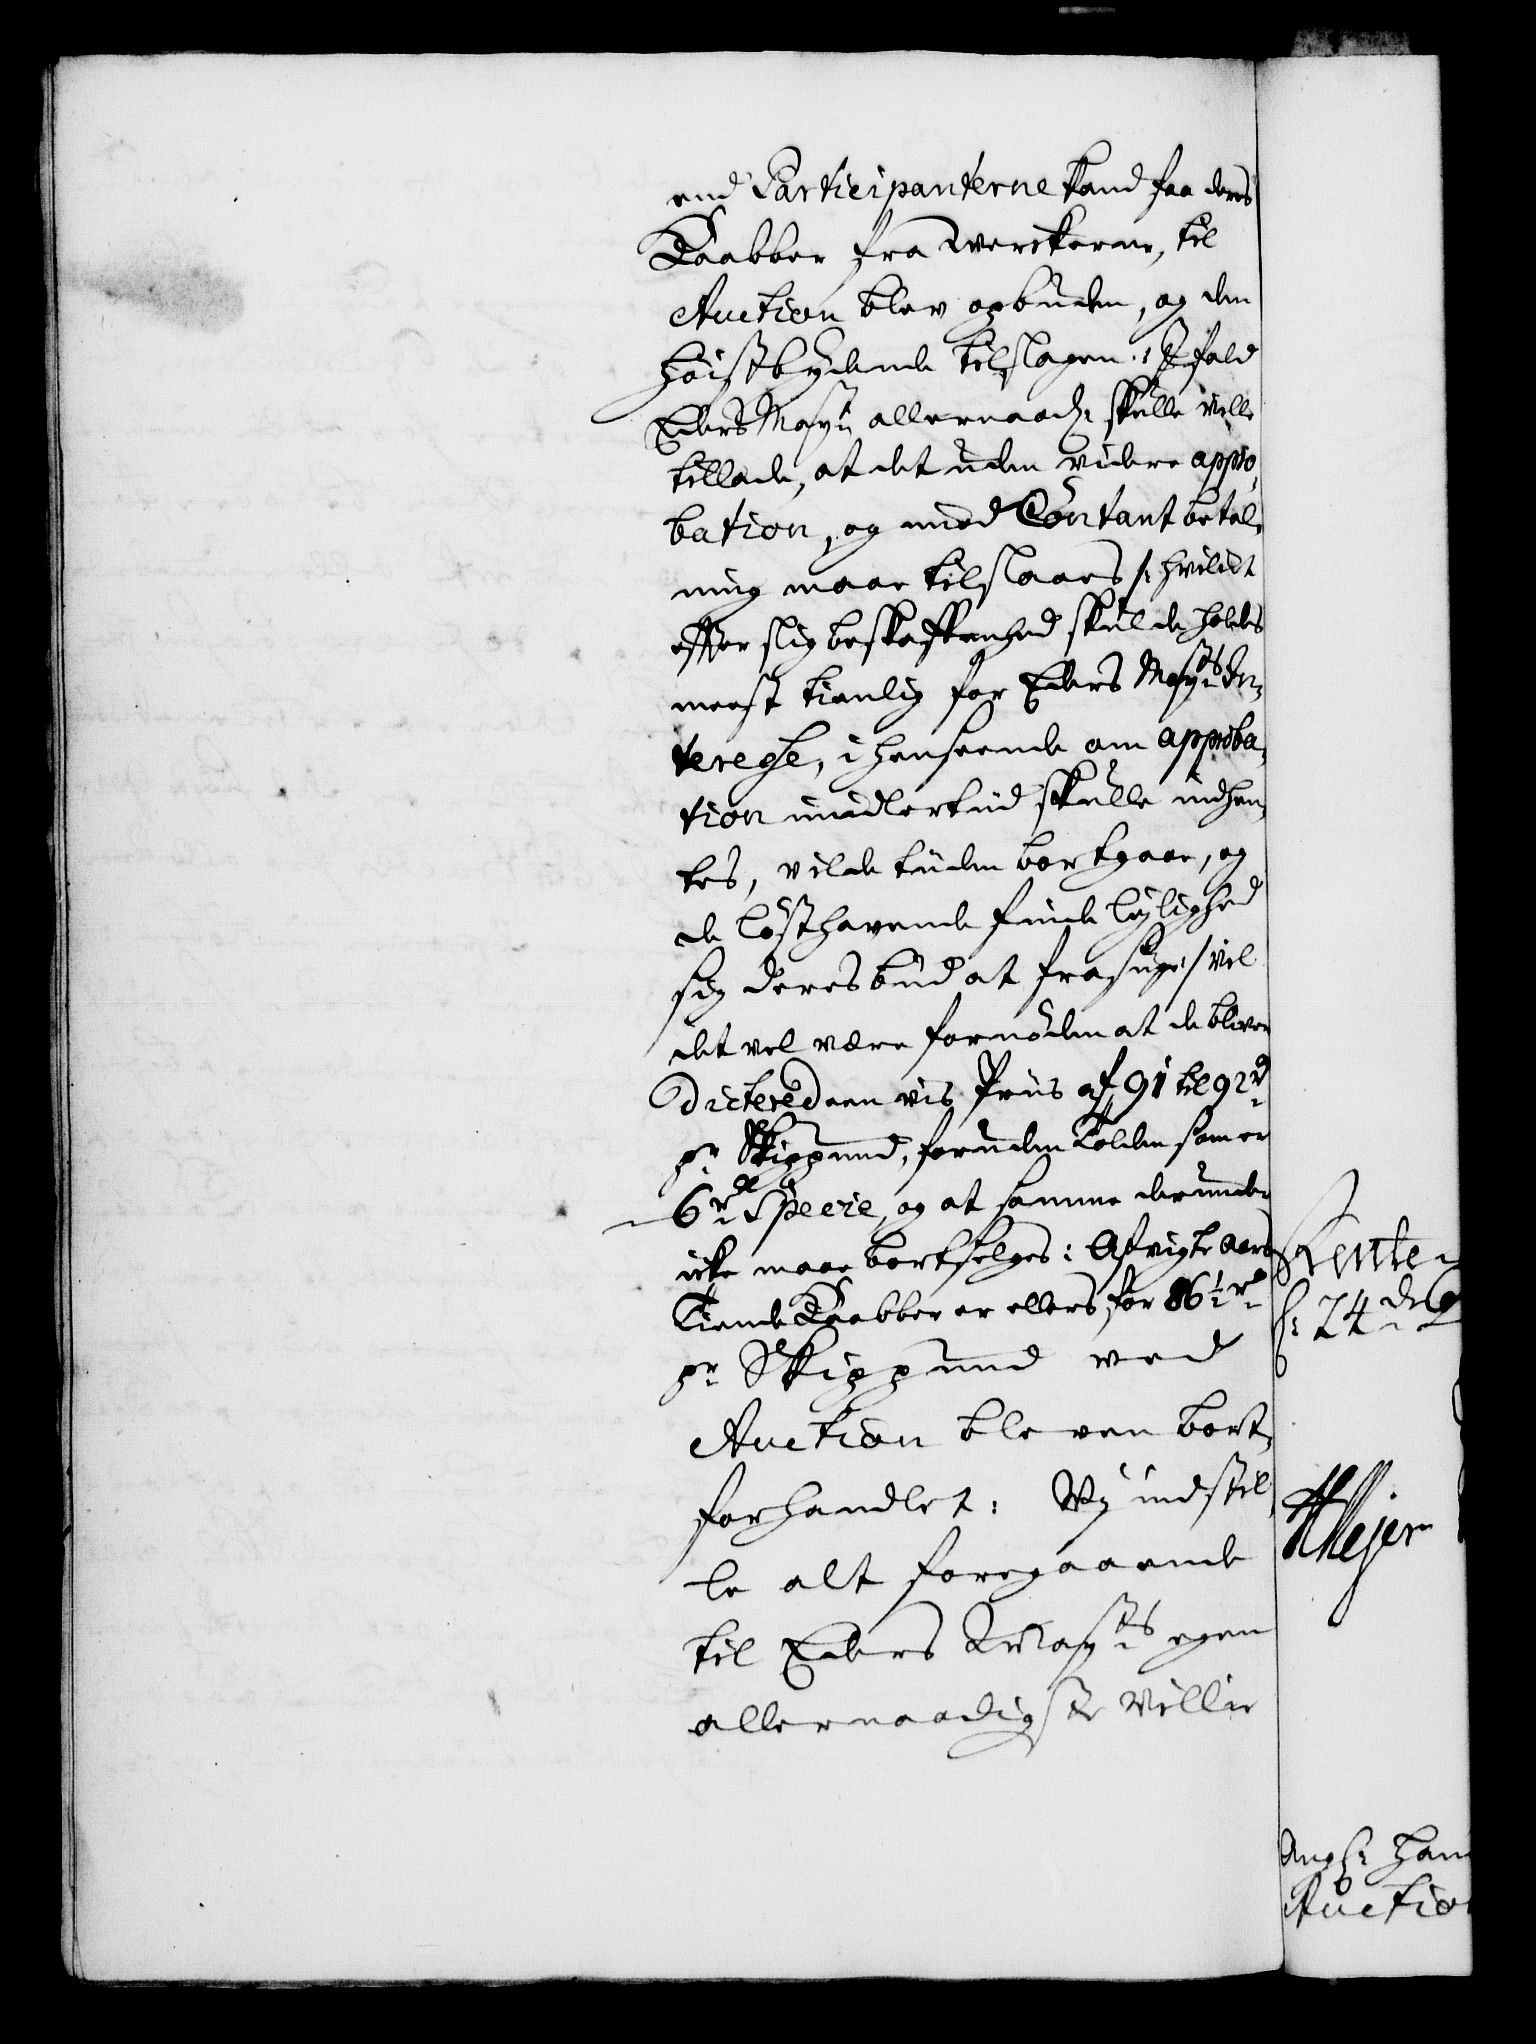 end Participanterne kand faa deres
Kaabber fra Werckerne, til
Auction blev opbuden, og den
høistbydende tilslagen: I fald
Eders Mayt: allernaad: skulle ville
tillade, at det uden videre appro,
bation, og mod Contant betal,
ning maae tilslaaes /: hvilcket
effter slig beskaffenhed skulde holdes
meest tienlig for Eders Mayts: In,
teresse, i henseende om approba,
tion imidlertiid skulle indhen,
tes, vilde tiiden bortgaae, og
de lösthavende finde leylighed
sig deres bud at frasige :/ vil
det vel være fornøden at de bliver
dicteret een vis Priis af 91 til 92 rd:
pr Skippund, foruden Tolden som er
6 rd: Specie, og at samme derunder
icke maae bortselges: Afvigte aars
Tiende Kaabber er ellers for 86½ rd:
pr Skippund ved
Auction bleven bort,
forhandlet: Wy indstil,
le alt foregaaende
til Eders Mayts: egen
allernaadigste Villie
Rente
24 de
Meyer
Ang:
Auctio